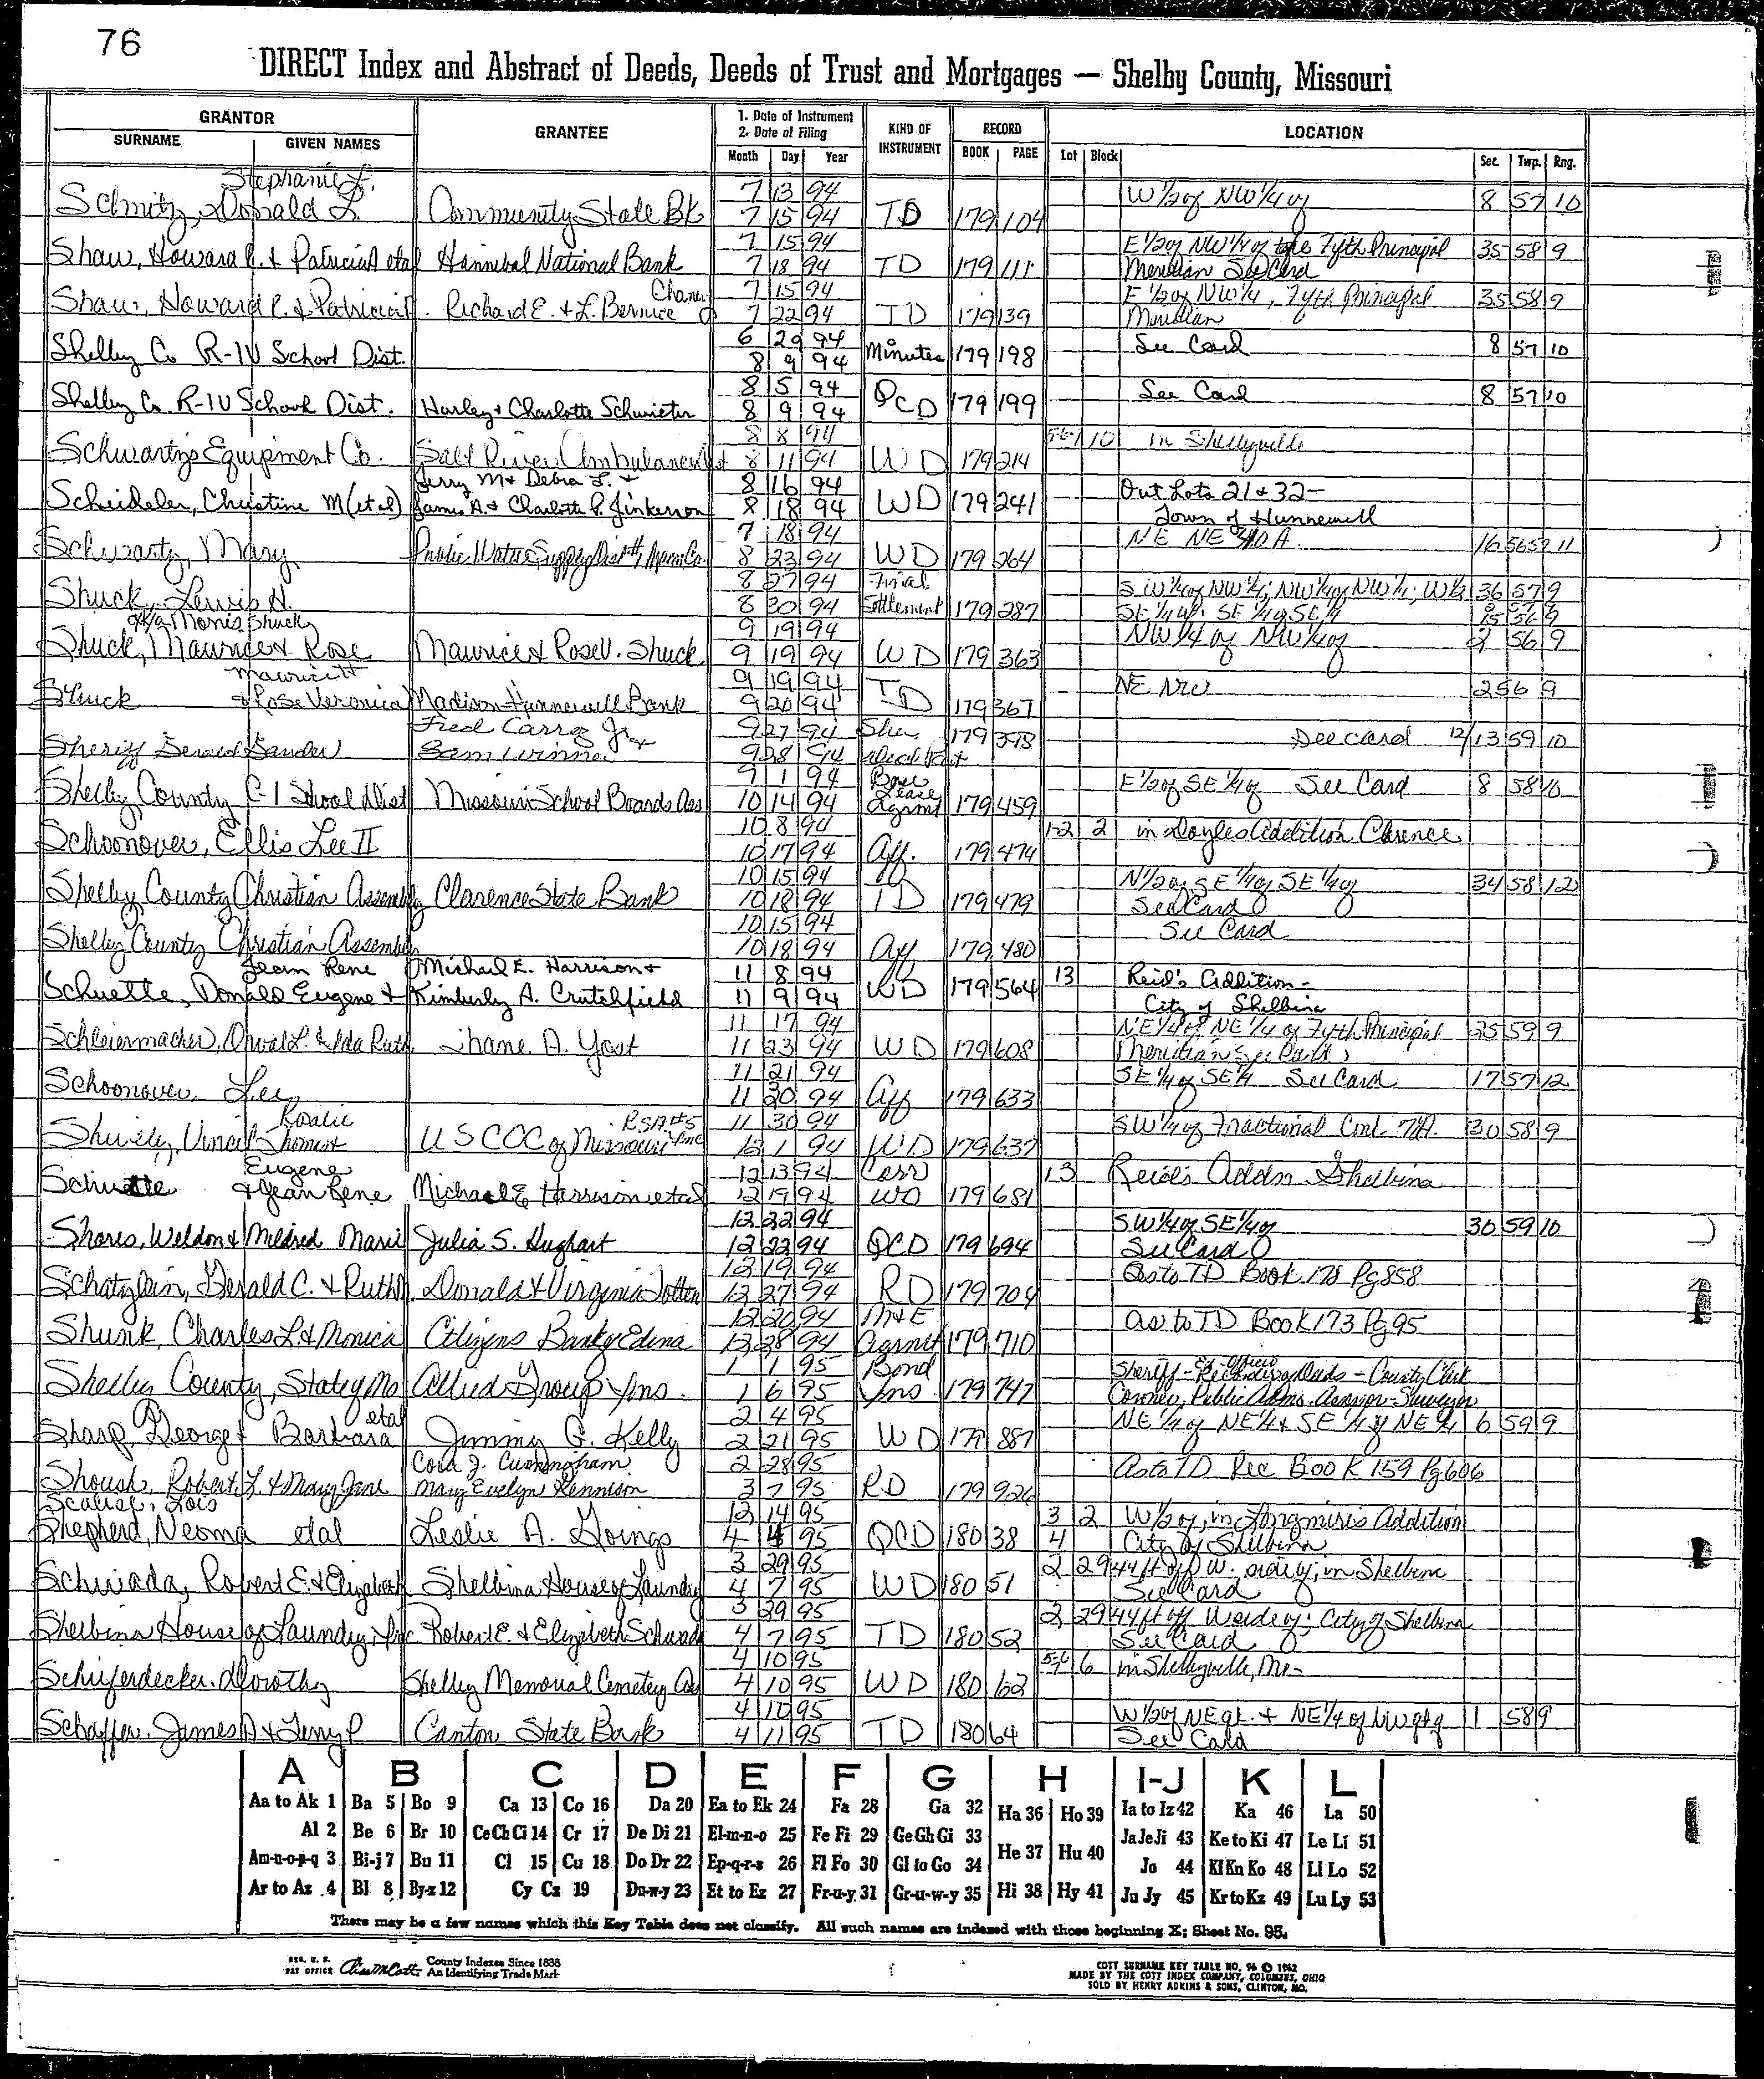 76
DIRECT Index and Abstract of Deeds, Deeds of Trust and Mortgages — Shelby County, Missouri
GRANTOR GRANTEE 1. Date of Instrument 2. Date of Filing KIND OF INSTRUMENT RECORD LOCATION
SURNAME GIVEN NAMES Month Day Year BOOK PAGE Lot Block Sec. Twp. Rng.
Stephanie L. 7 13 94 W 1/2 of NW 1/4 of 8 57 10
Schmitz, Donald L. Community State Bk 7 15 94 TD 179 104
7 15 94 E 1/2 of NW 1/4 of the Fifth Principal 35 58 9
Shaw, Howard P. & Patricia A etal Hannibal National Bank 7 18 94 TD 179 111 Meridian See Card
Chaney 7 15 94 E 1/2 of NW 1/4, Fifth Principal 35 58 9
Shaw, Howard P. & Patricia A. Richard E. & L. Bernice 7 22 94 TD 179 139 Meridian
6 29 94 See Card 8 57 10
Shelby Co R-IV School Dist. 8 9 94 Minutes 179 198
8 5 94 See Card 8 57 10
Shelby Co R-IV School Dist. Harley & Charlotte Schwieter 8 9 94 QCD 179 199
8 8 94 5-6-7 10 in Shelbyville
Schwartz Equipment Co. Salt River Ambulance Dist 8 11 94 WD 179 214
Jerry M & Debra L. & 8 16 94 Out Lots 21 & 32 –
Scheideler, Christine M (et al) James A. & Charlotte P. Jinkerson 8 18 94 WD 179 241 Town of Hunnewell
7 18 94 NE NE 40A. 16 56 11
Schwartz, Mary Public Water Supply Dist #1 Marion Co. 8 23 94 WD 179 264
8 27 94 Final SW 1/4 of NW 1/4; NW 1/4 of NW 1/4; W 1/2 36 57 9
Shuck, Lewis H. 8 30 94 Settlement 179 287 SE 1/4 SE 1/4 of SE 1/4 15 56 9
a/k/a Morris Shuck 9 19 94 NW 1/4 of NW 1/4 of 2 56 9
Shuck, Maurice & Rose Maurice & Rose V. Shuck 9 19 94 WD 179 363
Maurice H 9 19 94 NE NW 2 56 9
Shuck & Rose Veronica Madison-Hunnewell Bank 9 20 94 TD 179 367
Fred Carroz Jr & 9 27 94 She 179 398 See card 12/13 59 10
Sheriff Gerald Sander Sam Winner 9 28 94
9 1 94 Base E 1/2 of SE 1/4 of See Card 8 58 10
Shelby County C-1 School Dist Missouri School Boards Ass 10 14 94 Lease Agrmt 179 459
10 8 94 1-2 2 in Doyles Addition Clarence
Schoonover, Ellis Lee II 10 17 94 Aff. 179 474
10 15 94 N 1/2 of SE 1/4 of SE 1/4 of 34 58 12
Shelby County Christian Assembly Clarence State Bank 10 18 94 TD 179 479 See Card
10 15 94 See Card
Shelby County Christian Assembly 10 18 94 Aff 179 480
Jean Rene Michael E. Harrison & 11 8 94 13 Reid's Addition –
Schuette, Donald Eugene & Kimberly A. Crutchfield 11 9 94 WD 179 564 City of Shelbina
11 17 94 NE 1/4 of NE 1/4 of Fifth Principal 25 59 9
Schleiermacher, Orval L. & Ida Ruth Shane A. Yost 11 23 94 WD 179 608 Meridian See Card
11 21 94 SE 1/4 of SE 1/4 See Card 17 57 12
Schoonover, Lee 11 30 94 Aff 179 633
Rosalie RSA #5 11 30 94 SW 1/4 of Fractional Cont. 7A. 30 58 9
Shively, Vincil Thomas & US COC of Missouri Inc 12 1 94 WD 179 637
Eugene 12 13 94 Corr 13 Reid's Addn Shelbina
Schuette & Jean Rene Michael E Harrison et al 12 19 94 WD 179 681
12 22 94 SW 1/4 of SE 1/4 of 30 59 10
Shores, Weldon & Mildred Marie Julia S. Hughart 12 22 94 QCD 179 694 See Card
12 19 94 As to TD Book 178 Pg 858
Schatzlein, Gerald C. & Ruth Donald & Virginia Totten 12 27 94 RD 179 704
12 20 94 M & E As to TD Book 173 Pg 95
Shunk, Charles L & Monica Citizens Bank of Edina 12 28 94 Agrmt 179 710
1 1 95 Bond Sheriff – Ex-Officio Recording Deeds – County Clerk
Shelby County, State of Mo Allied Group Ins. 1 6 95 Ins. 179 747 Coroner, Public Adms. Assessor – Surveyor
etal 2 4 95 NE 1/4 of NE 1/4 & SE 1/4 of NE 1/4 6 59 9
Sharp George & Barbara Jimmy G. Kelly 2 21 95 WD 179 887
Cora J. Cunningham 2 28 95 As to TD Rec Book 159 Pg 606
Shoush, Robert L. & Mary Jane Mary Evelyn Kennison 3 7 95 RD 179 926
Scalise, Lois 12 14 95 3 2 W 1/2 of, in Longmires Addition
Shepherd, Neoma etal Leslie A. Goings 4 4 95 QCD 180 38 4 City of Shelbina
3 29 95 2 29 44 ft off W. side of, in Shelbina
Schwada, Robert E. & Elizabeth Shelbina House of Laundry 4 7 95 WD 180 51 See Card
3 29 95 2 29 44 ft off W side of; City of Shelbina
Shelbina House of Laundry, Inc Robert E. & Elizabeth Schwada 4 7 95 TD 180 52 See Card
4 10 95 5-6 6 in Shelbyville, Mo –
Schiferdecker, Dorothy Shelby Memorial Cemetery 4 10 95 WD 180 62
4 10 95 W 1/2 of NE qt. & NE 1/4 of NW qt of 1 58 9
Schaffer, James A & Terry P Canton State Bank 4 11 95 TD 180 64 See Card
A B C D E F G H I-J K L
Aa to Ak 1 Ba 5 Bo 9 Ca 13 Co 16 Da 20 Ea to Ek 24 Fa 28 Ga 32 Ha 36 Ho 39 Ia to Iz 42 Ka 46 La 50
Al 2 Be 6 Br 10 Ce Ch Ci 14 Cr 17 De Di 21 El-m-n-o 25 Fe Fi 29 Ge Gh Gi 33 He 37 Hu 40 Ja Je Ji 43 Ke to Ki 47 Le Li 51
Am-n-o-p-q 3 Bi-j 7 Bu 11 Cl 15 Cu 18 Do Dr 22 Ep-q-r-s 26 Fl Fo 30 Gl to Go 34 Jo 44 Kl Kn Ko 48 Ll Lo 52
Ar to Az 4 Bl 8 By-z 12 Cy Cz 19 Du-w-y 23 Et to Ez 27 Fr-u-y 31 Gr-u-w-y 35 Hi 38 Hy 41 Ju Jy 45 Kr to Kz 49 Lu Ly 53
There may be a few names which this Key Table does not classify. All such names are indexed with those beginning X; Sheet No. 95.
REG. U. S. PAT OFFICE County Indexes Since 1888 An Identifying Trade Mark
COTT SURNAME KEY TABLE NO. 96 © 1962
MADE BY THE COTT INDEX COMPANY, COLUMBUS, OHIO
SOLD BY HENRY ADKINS & SONS, CLINTON, MO.